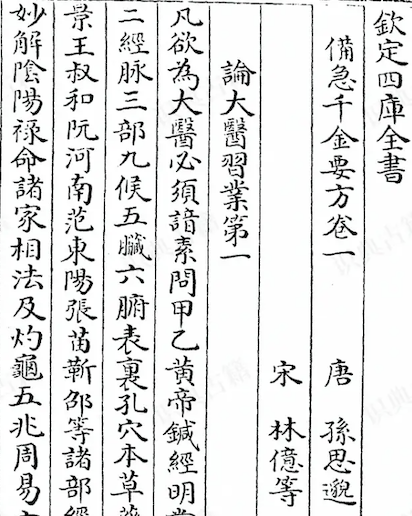 欽定四庫全書
備急千金要方卷一 唐 孫思邈
宋 林億等
論大醫習業第一
凡欲為大醫必須諳素問甲乙黃帝鍼經明
二經脉三部九候五臟六腑表裏孔穴本草
景王叔和阮河南范東陽張苗靳邵等諸部
妙解陰陽祿命諸家相法及灼龜五兆周易